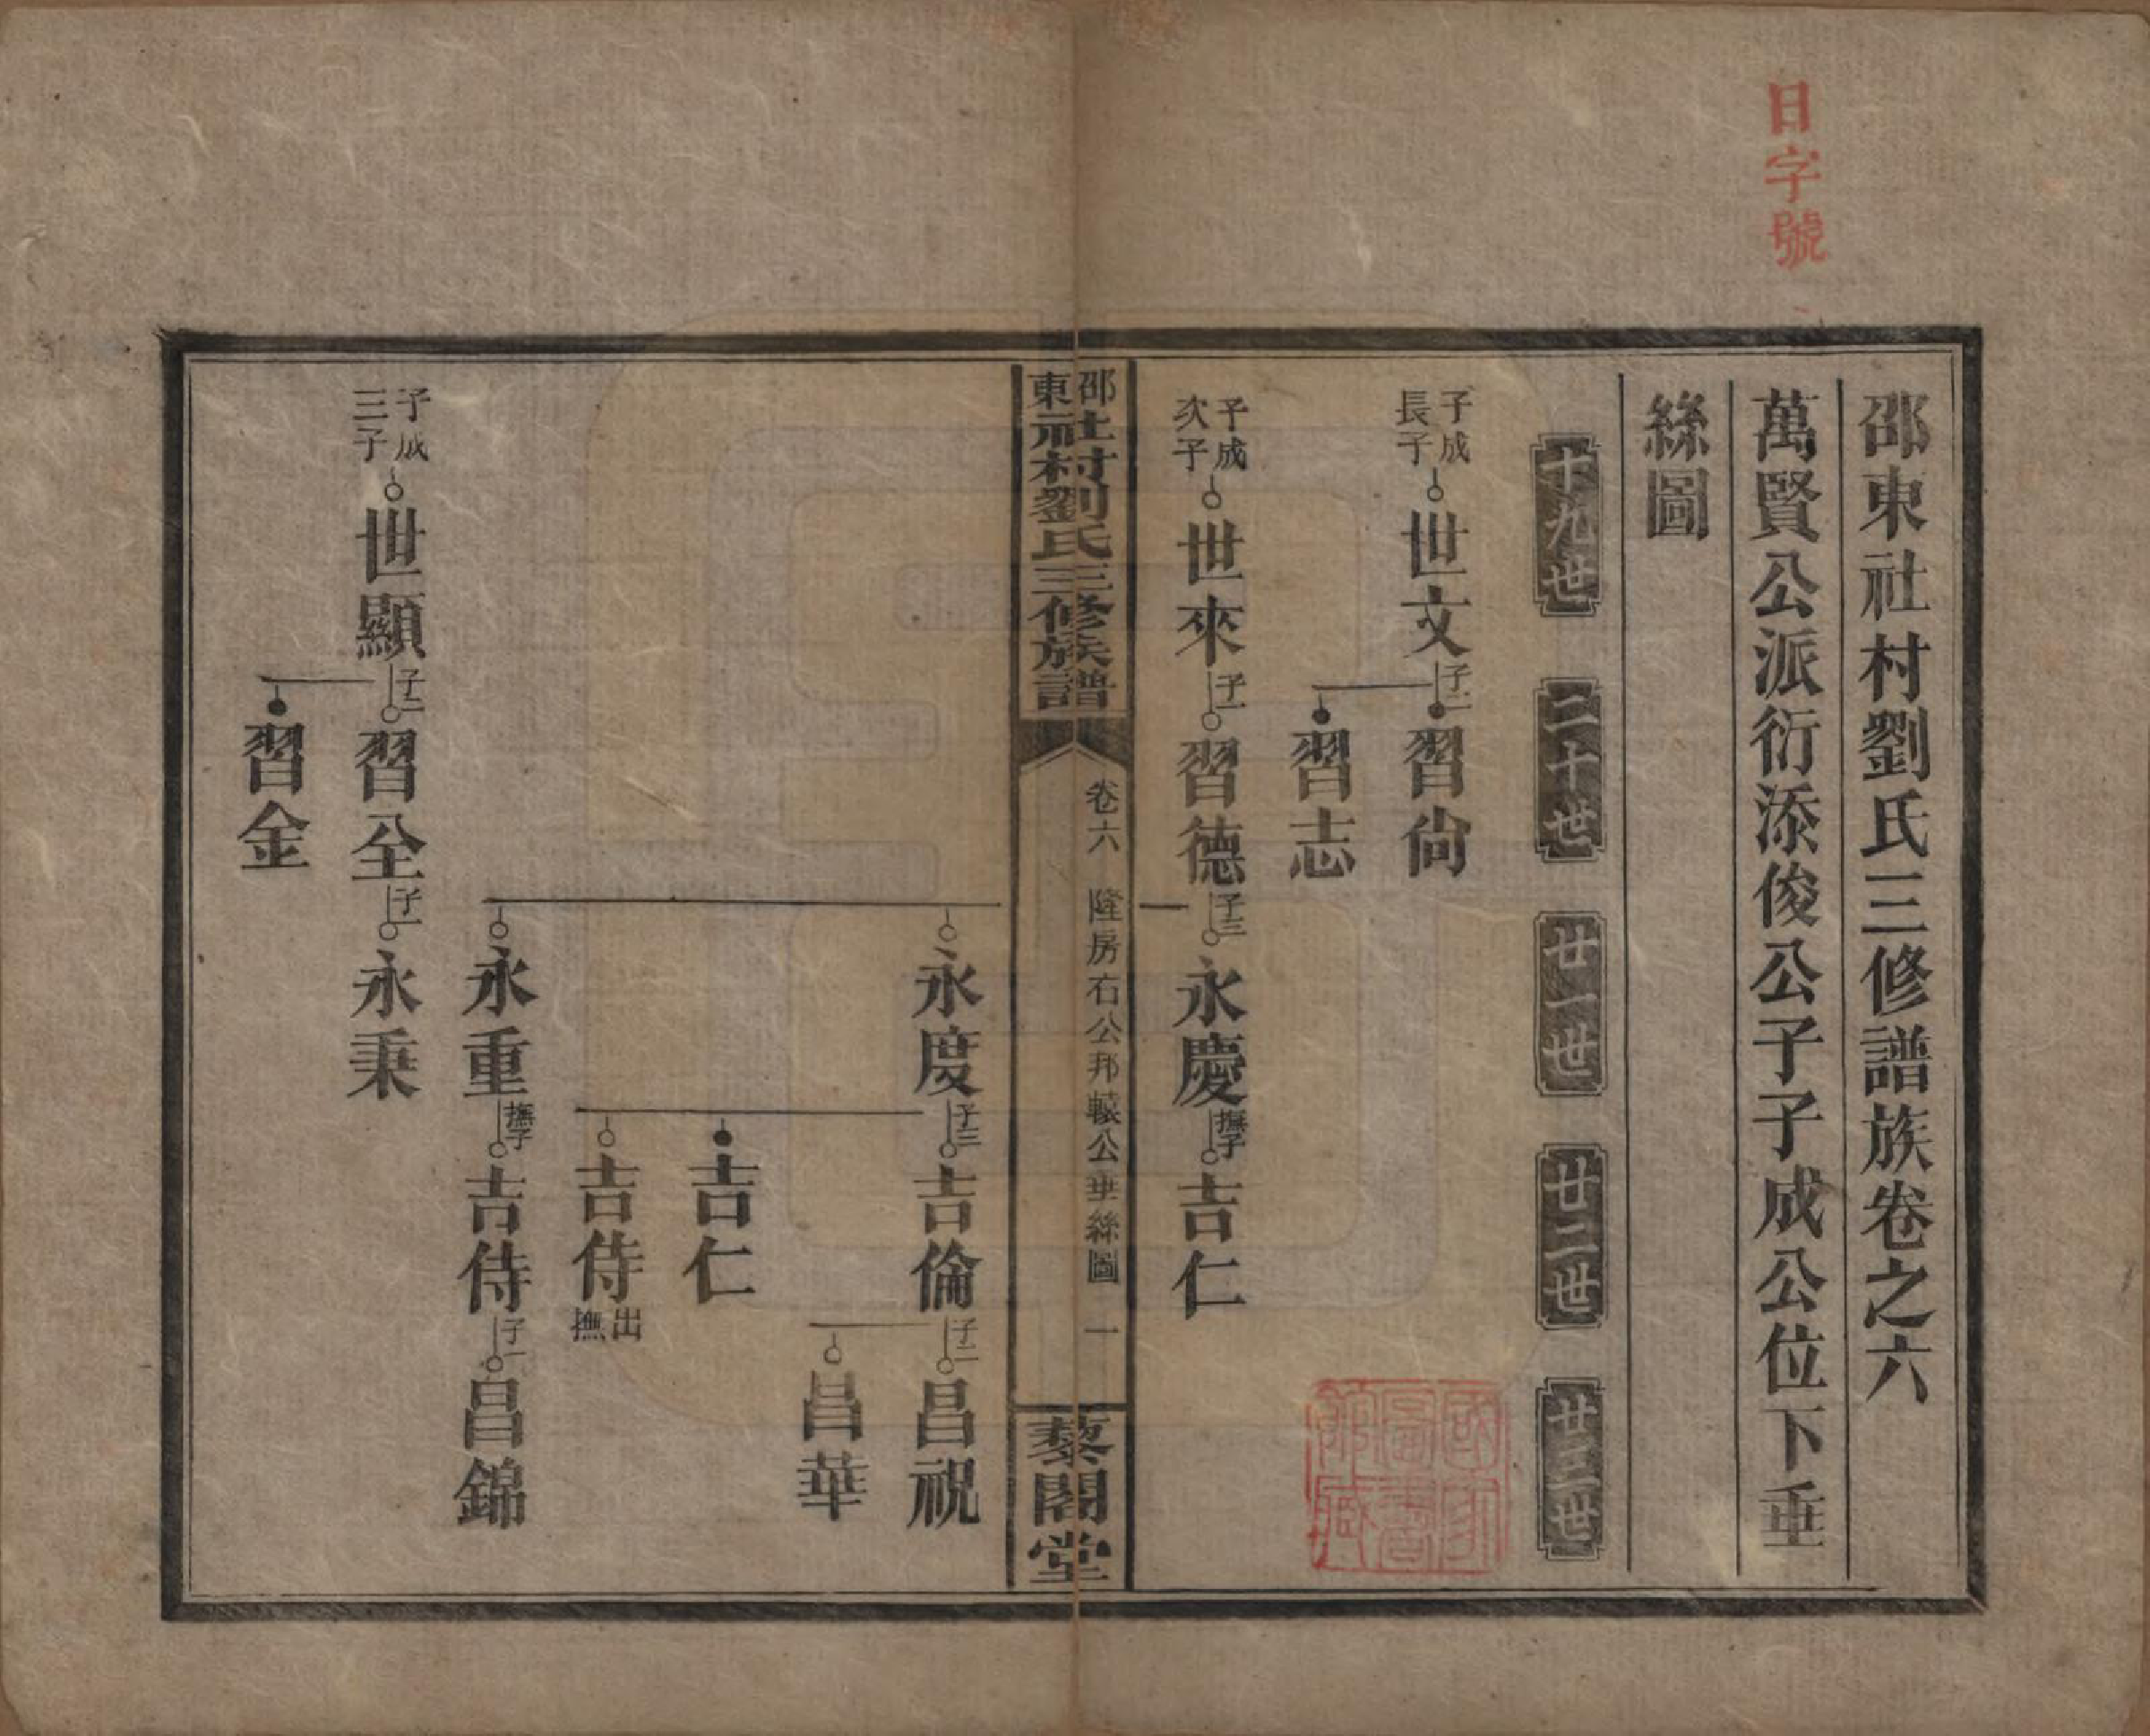 日字號
邵東社村劉氏三修譜族卷之六
萬賢公派衍添俊公子子成公位下垂
絲圖
十九世
二十世
廿一世
廿二世
廿三世
子成長子
世文
子二
習尙
習志
子成次子
世來
子一
習德
子三
永慶
撫子
吉仁
邵東社村劉氏三修族譜
卷六
隆房右公邦轅公垂絲圖
一
藜閣堂
永度
子三
吉倫
子二
昌祝
昌華
吉仁
吉侍
出撫
永重
撫子
吉侍
子一
昌錦
子成三子
世顯
子二
習全
子一
永秉
習金
國家圖書館藏